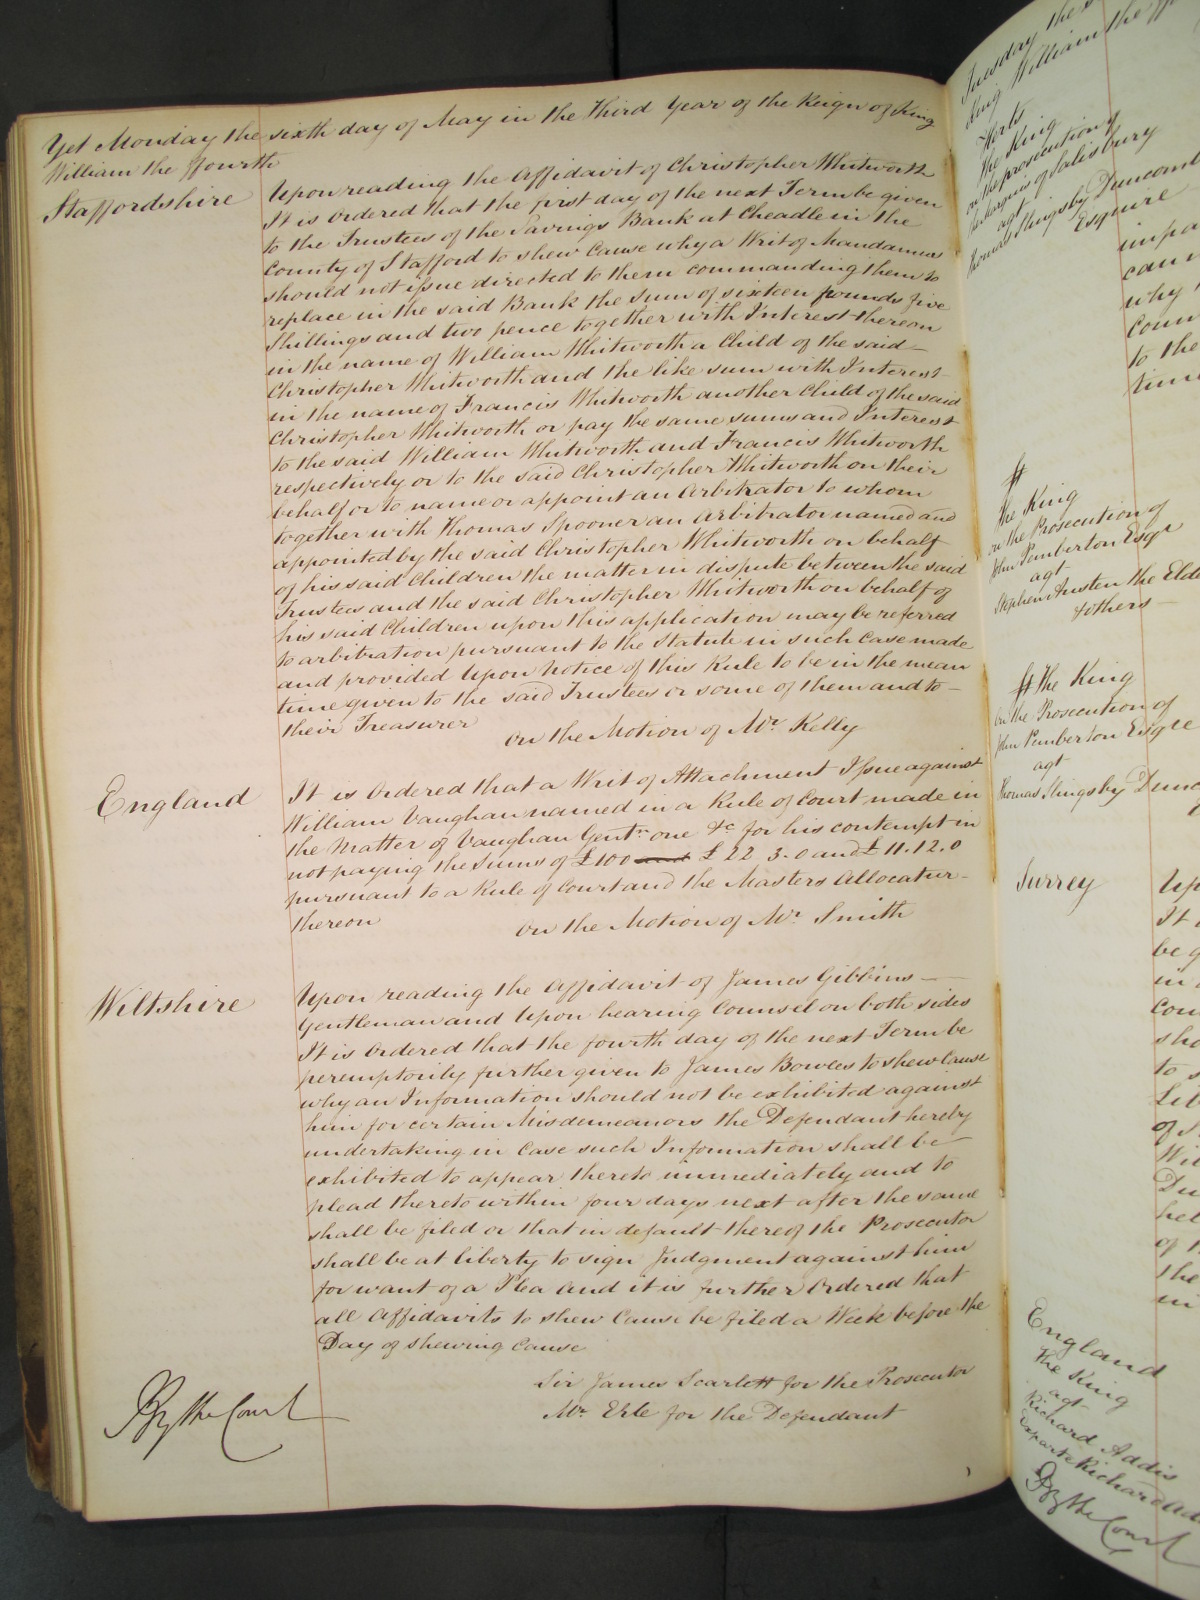 Yet Monday the sixth day of May in the Third Year of the Reign of King
William the ffourth
Staffordshire
Upon reading the Affidavit of Christopher Whitworth
It is Ordered that the first day of the next Term be given
to the Trustees of the Savings Bank at Cheadle in the
County of Stafford to shew Cause why a Writ of Mandamus
should not issue directed to them commanding them to
replace in the said Bank the Sum of sixteen pounds five
Shillings and two pence together with Interest thereon
in the name of William Whitworth a Child of the said
Christopher Whitworth and the like sum with Interest
in the name of Francis Whitworth another Child of the said
Christopher Whitworth or pay the same sums and Interest
to the said William Whitworth and Francis Whitworth
respectively or to the said Christopher Whitworth on their
behalf or to name or appoint an Arbitrator to whom
together with Thomas Spooner an Arbitrator named and
appointed by the said Christopher Whitworth on behalf
of his said Children the matter in dispute between the said
Trustees and the said Christopher Whitworth on behalf of
his said Children upon this application may be referred
to arbitration pursuant to the Statute in such Case made
and provided Upon Notice of this Rule to be in the mean
time given to the said Trustees or some of them and to
their Treasurer
On the Motion of Mr. Kelly
England
It is Ordered that a Writ of Attachment Issue against
William Vaughan named in a Rule of Court made in
the Matter of Vaughan Gentn. one &c for his contempt in
not paying the Sums of £100 and £22 3.0 and £11.12.0
pursuant to a Rule of Court and the Masters Allocatur
thereon
On the Motion of Mr. Smith
Wiltshire
Upon reading the Affidavit of James Gibbins
Gentleman and Upon hearing Counsel on both sides
It is Ordered that the fourth day of the next Term be
peremptorily further given to James Bowles to shew Cause
why an Information should not be exhibited against
him for certain Misdemeanors the Defendant hereby
undertaking in Case such Information shall be
exhibited to appear thereto immediately and to
plead thereto within four days next after the same
shall be filed or that in default thereof the Prosecutor
shall be at liberty to sign Judgment against him
for want of a Plea And it is further Ordered that
all Affidavits to shew Cause be filed a Week before the
Day of shewing Cause
Sir James Scarlett for the Prosecutor
Mr. Erle for the Defendant
By the Court
Tuesday the
King William the
Herts
The King
on the prosecution of
Marquis of Salisbury
agt
Thomas Slingsby Duncombe
Esquire
impa
can
why
Coun
to the
time
The King
on the Prosecution of
John Pemberton Esqr
agt
Stephen Austen the Elder
& others
The King
on the Prosecution of
John Pemberton Esqre
agt
Thomas Slingsby Dunc
Surrey
Up
It
be g
in
Cou
sho
to s
Lib
of
Wil
Du
hel
of
the
in
England
The King
agt
Richard Addis
Exparte Richard Ad
By the Court